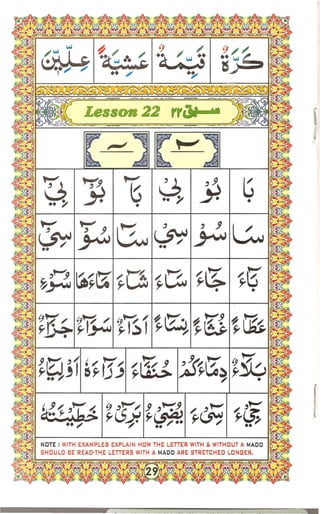 كَرَّةٌ قَيِّمَةٌ عَشِيَّةً عِلِّيِّيْنَ
Lesson 22 سبق ۲۲
بَا بُوْ بِيْ بَآ بُوْٓ بِيْٓ
سَا سُوْ سِيْ سَآ سُوْٓ سِيْٓ
بَآءَ جَآءَ سَآءَ شَآءَ مَآءَهَا سُوْٓءِ
عَطَآءً غُثَآءً نِسَآءً اَدَآءٌ سَوَآءٌ جَزَآءً
بَلَآءٌ دِمَآءَكُمْ حُنَفَآءَ وَرَآءَهٗ اَوْلِيَآءَ
جِآيْءَ سِيْٓءَ يُضِيْٓءُ بَرِيْٓءٌ خَطِيْٓئَتُهٗ
NOTE : WITH EXAMPLES EXPLAIN HOW THE LETTER WITH & WITHOUT A MADD
SHOULD BE READ-THE LETTERS WITH A MADD ARE STRETCHED LONGER.
29